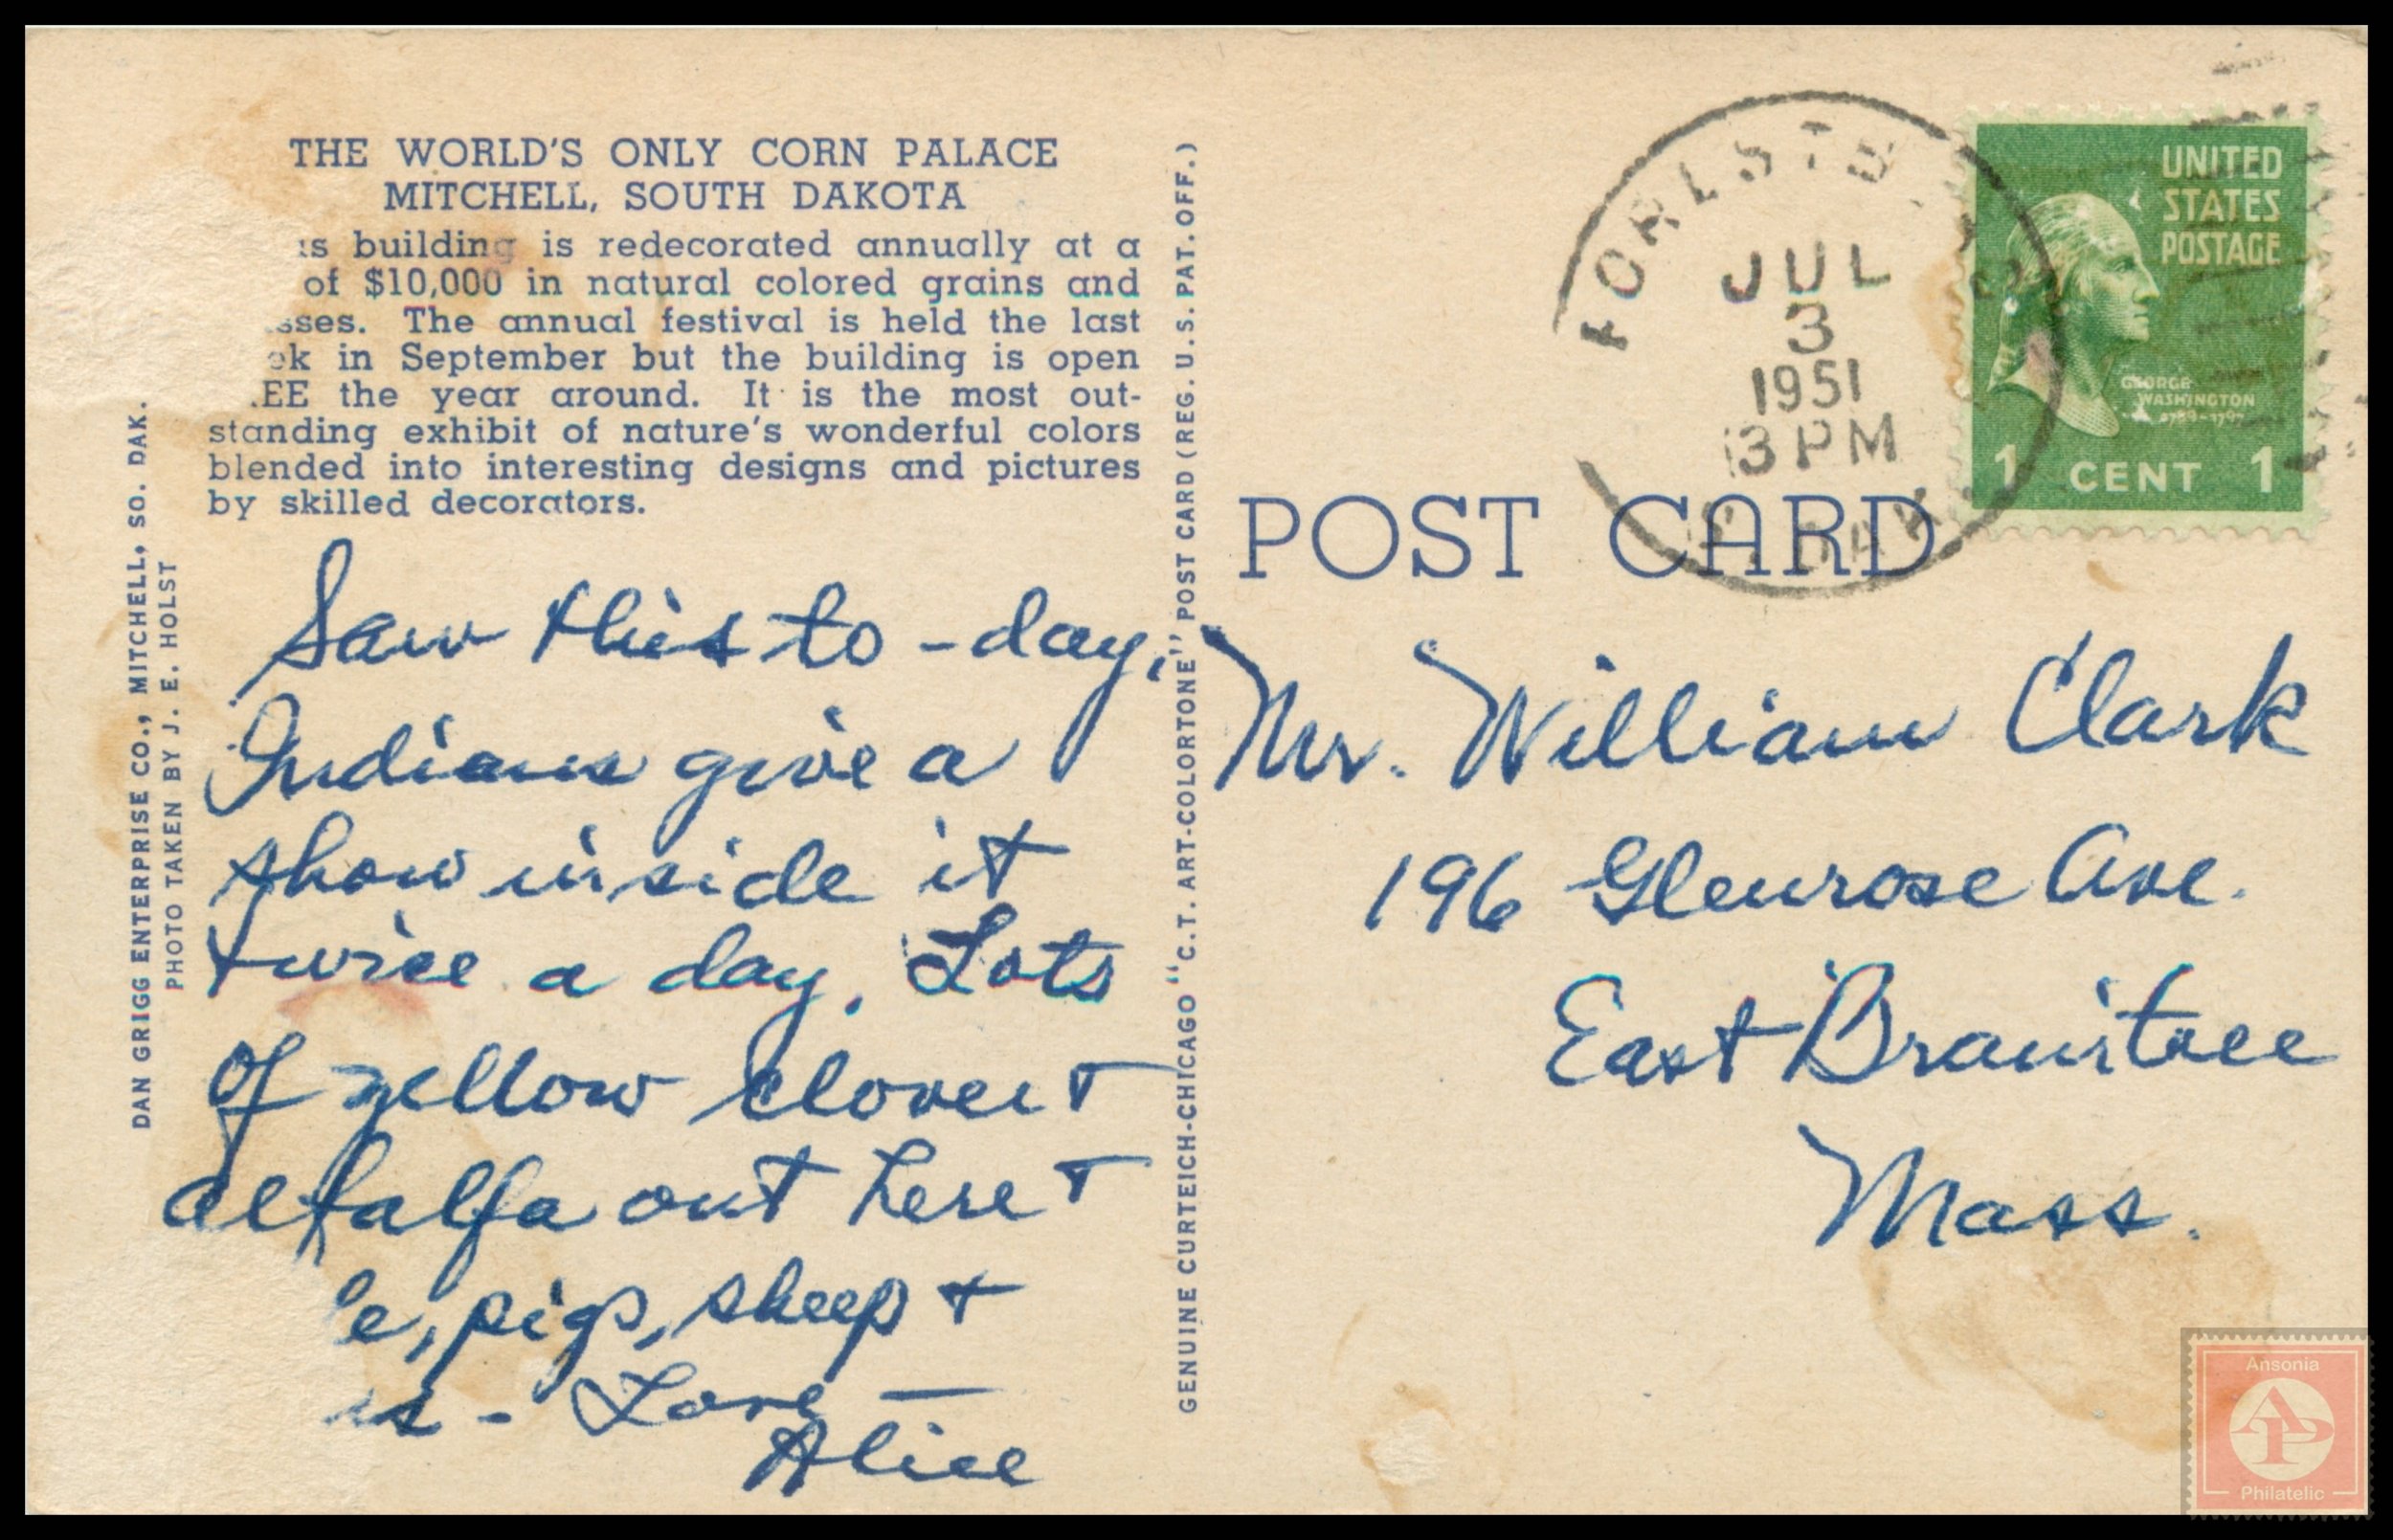 THE WORLD'S ONLY CORN PALACE
MITCHELL, SOUTH DAKOTA
is building is redecorated annually at a
of $10,000 in natural colored grains and
sses. The annual festival is held the last
ek in September but the building is open
EE the year around. It is the most out-
standing exhibit of nature's wonderful colors
blended into interesting designs and pictures
by skilled decorators.
DAN GRIGG ENTERPRISE CO., MITCHELL, SO. DAK.
PHOTO TAKEN BY J. E. HOLST
Saw this to-day,
Indians give a
show inside it
twice a day. Lots
of yellow clover +
alfalfa out here +
e, pigs, sheep +
es - Love —
Alice
GENUINE CURTEICH-CHICAGO "C.T. ART-COLORTONE" POST CARD (REG. U.S. PAT. OFF.)
POST CARD
JUL
3
1951
3 PM
UNITED
STATES
POSTAGE
GEORGE
WASHINGTON
1789-1797
1 CENT 1
Mr. William Clark
196 Glenrose Ave.
East Braintree
Mass.
Ansonia
AP
Philatelic